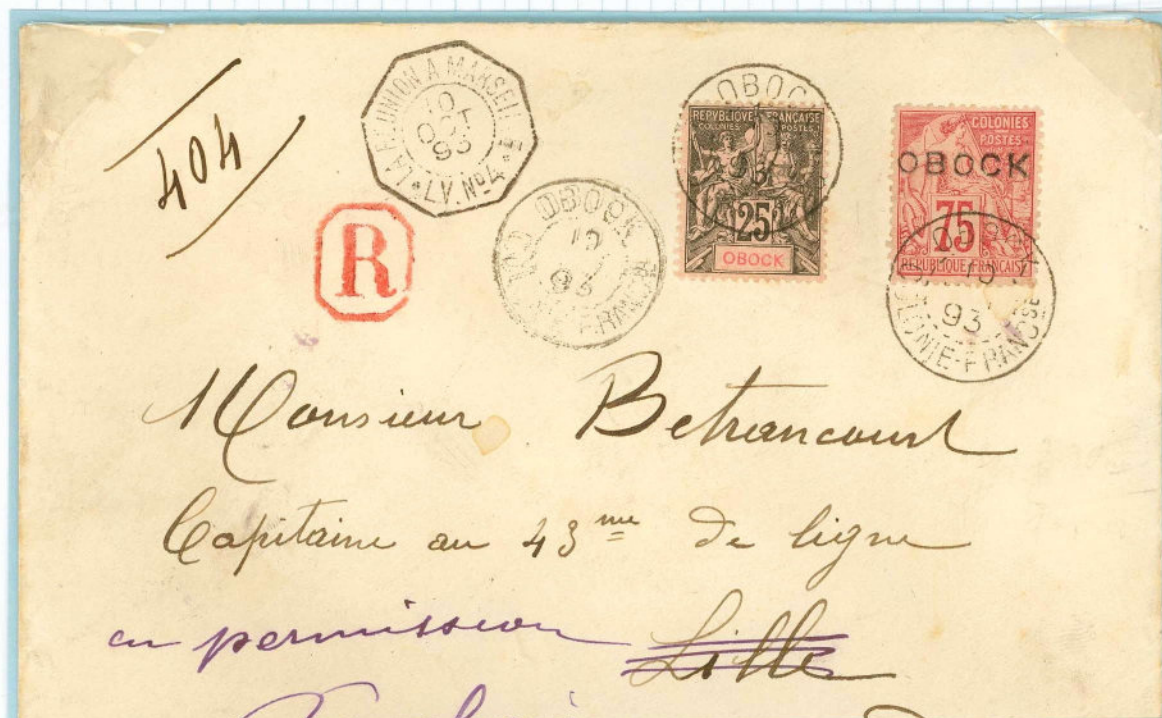 404
LA REUNION A MARSEILLE
10
OCT
93
L.V. Nº4
R
OBOCK
10
93
OBOCK
93
REPUBLIQUE FRANÇAISE
COLONIES POSTES
25
OBOCK
COLONIES
POSTES
OBOCK
75
REPUBLIQUE FRANÇAISE
10
93
COLONIE-FRANÇSE
Monsieur Betrancourt
Capitaine au 43me de ligne
en permission Lille